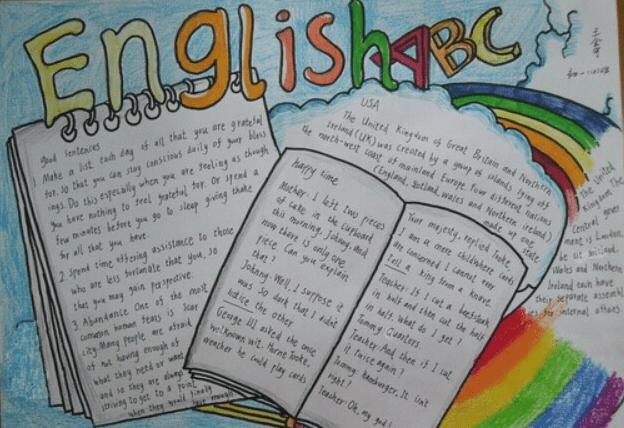 English ABC
good sentences
1 Make a list each day of all that you are grateful
for. So that you can stay conscious daily of your bless
ings. Do this especially when you are feeling as though
you have nothing to feel grateful for. Or spend a
few minutes before you go to sleep giving thanks
for all that you have.
2. Spend time offering assistance to those
who are less fortunate that you, so
that you may gain perspective.
3. Abundance One of the most
common human fears is scar
city Many people are afraid
of not having enough of
what they need or want
and so they are always
striving to get to a point
when they would finally
have enough
USA
The United Kingdom of Great Britain and Northern
Ireland (UK) was created by a group of islands lying off
the north-west coast of mainland Europe. Four different nations
(England, Scotland, Wales and Northern Ireland)
made up one
state
The United
Kingdom. The
central gover
ment is London,
Wales and Northern
Ireland each have
their separate assembl
ies for internal affairs
Happy time
Mother: I left two pieces
of cake in the cupboard
this morning, Johnny, and
now there is only one
piece. Can you explain
that?
Johnny: Well, I suppose it
was so dark that I didnt
notice the other
George III asked the once
wellknown wit. Horne Tooke,
wreacher he could play cards
Your majesty, replied Tooke,
I am a mere child where cards
are concerned I cannot even
Tell a king from a knave
Teacher: If I cut a beefsteak
in half and then cut the half
in half, what do I get?
Tommy: Quarters
Teacher: And then if I cut
it twice again?
Tommy: hamburger, It isn't
right?
Teacher: Oh, my god!